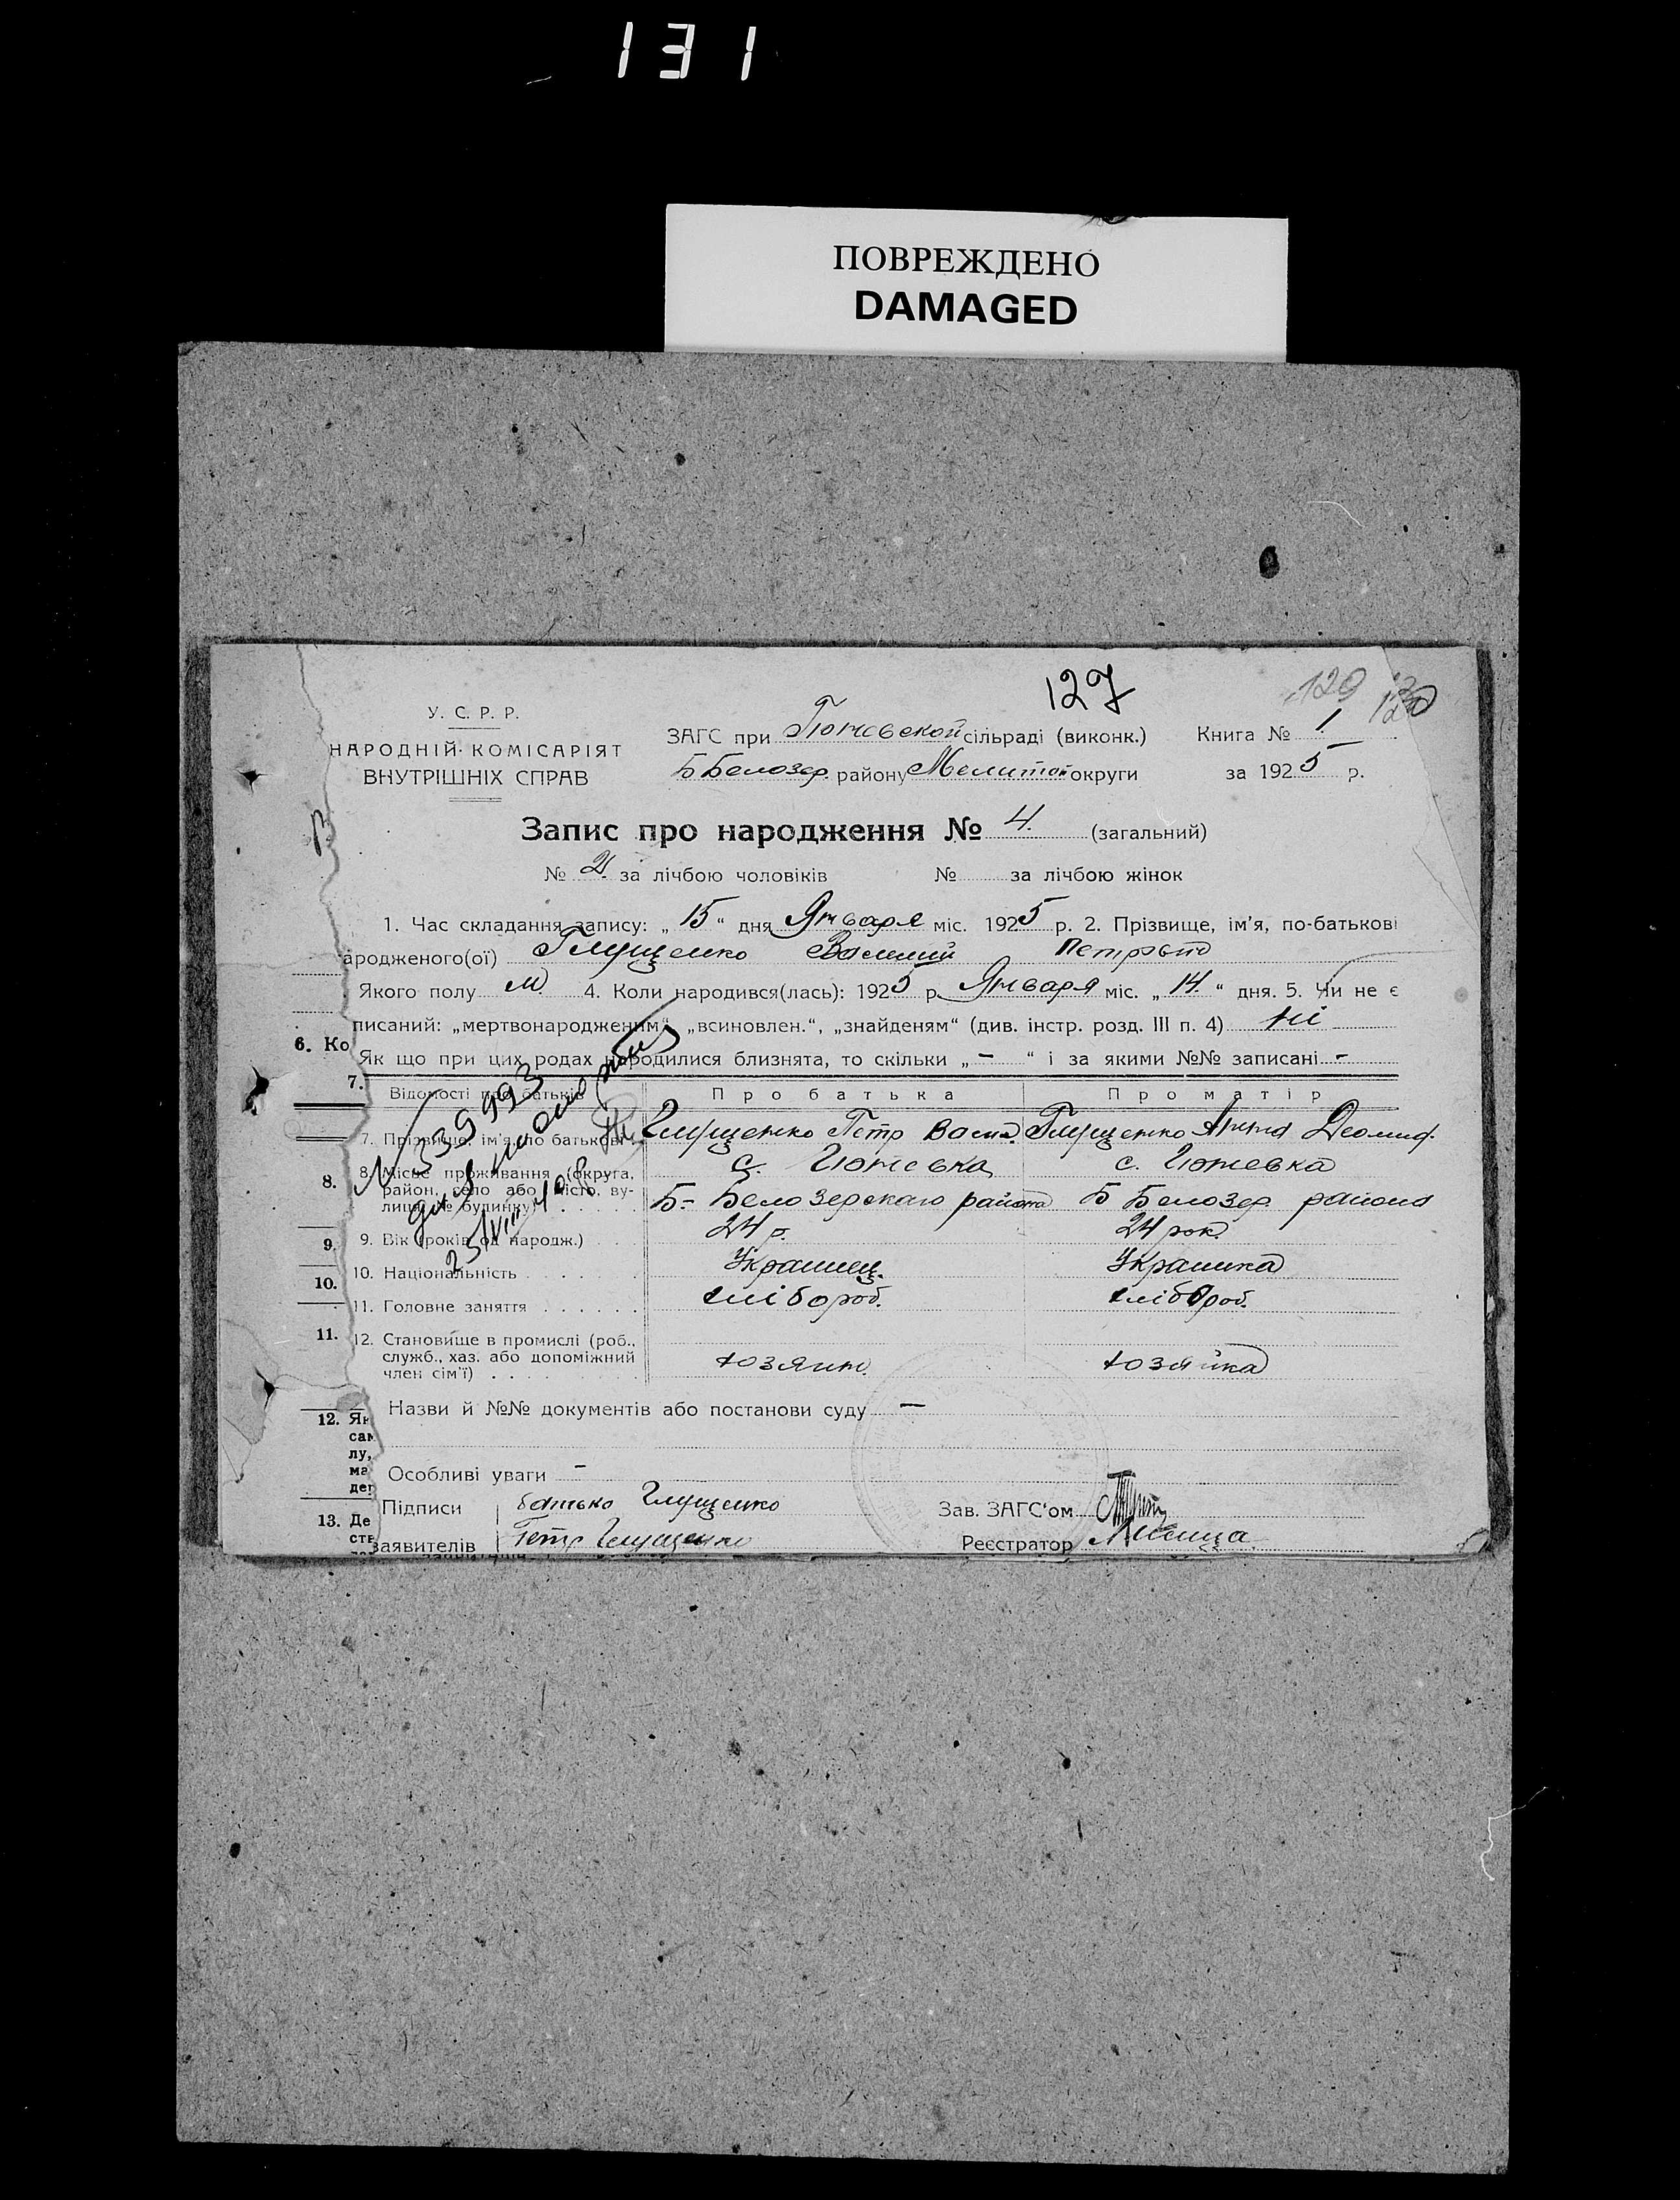 131
ПОВРЕЖДЕНО
DAMAGED
127
129
У. С. Р. Р.
НАРОДНІЙ КОМІСАРІЯТ
ВНУТРІШНІХ СПРАВ
ЗАГС при Гюневской сільраді (виконк.) Книга № 1
Б Белозер. району Мелитоп округи за 1925 р.
Запис про народження № 4. (загальний)
№ 2 за лічбою чоловіків № за лічбою жінок
1. Час складання запису: „15“ дня Января міс. 1925 р. 2. Прізвище, ім'я, по-батькові
ародженого(ої) Глущенко Василий Петрович
Якого полу м. 4. Коли народився(лась): 1925 р. Января міс. „14.“ дня. 5. Чи не є
писаний: „мертвонародженим“, „всиновлен.“, „знайденям“ (див. інстр. розд. III п. 4) ні
6. Ко
Як що при цих родах народилися близнята, то скільки „-“ і за якими №№ записані -
7.
Відомості про батьків Про батька Про матір
7. Прізвище, ім'я, по батькові Глущенко Петр Васил. Глущенко Анна Деомид.
8. Місце проживання (округа, с. Гюневка с. Гюневка
район, село або місто, ву-
лиця, № будинку) Б- Белозерскаго района Б Белозер района
8.
9. 9. Вік (років од народж.) 24 р. 24 рок.
10. 10. Національність Украинец. Украинка
11. Головне заняття хлібороб. хлібороб.
11. 12. Становище в промислі (роб.,
служб., хаз. або допоміжний
член сім'ї) хозяин. хозяйка
N 339993
25/VIII
12. Як
сам
лу,
ма
дер
Назви й №№ документів або постанови суду -
Особливі уваги -
13. Де
ств
Підписи батько Глущенко Зав. ЗАГС'ом
заявителів Петр Глущенко Реєстратор